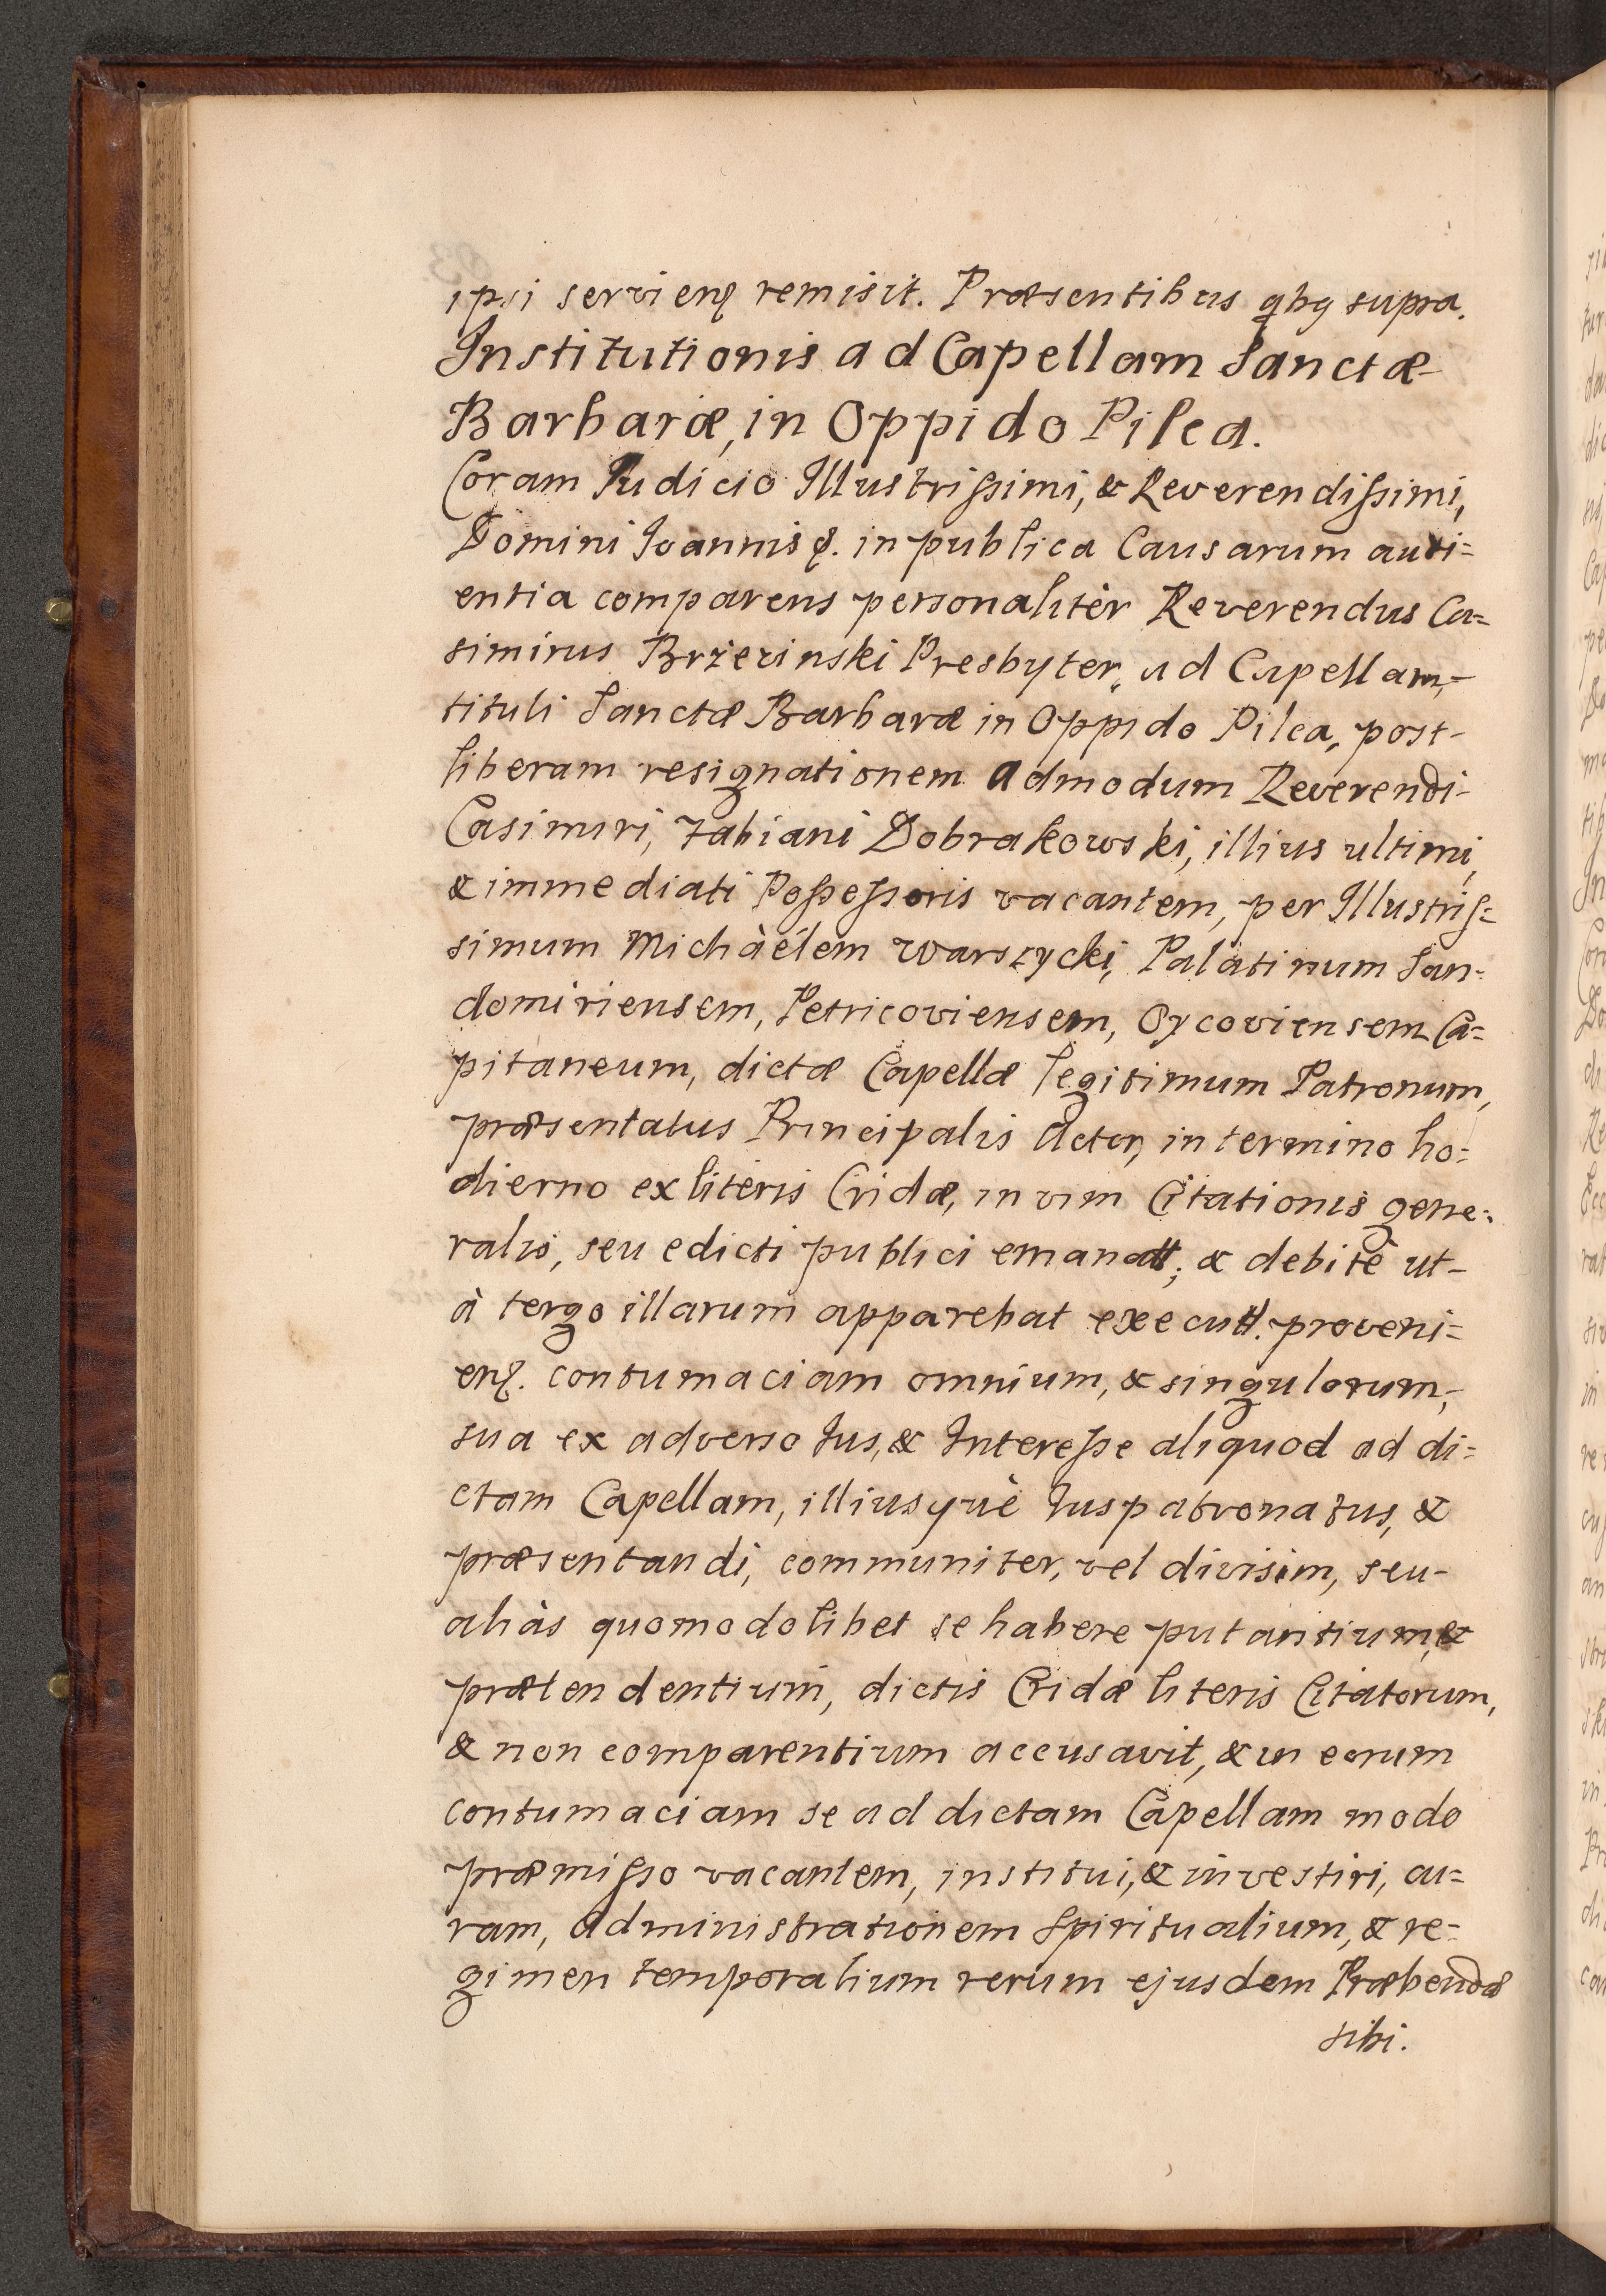 ipsi servienꝭ remisit. Præsentibus qbꝯ supra.
Institutionis ad Capellam Sanctæ
Barbaræ, in Oppido Pilca.
Coram Iudicio Illustrißimi, & Reverendißimi,
Domini Ioannis &. in publica Causarum audi=
entia comparens personalitèr Reverendus Ca=
simirus Brzezinski Presbyter, ad Capellam,
tituli Sanctæ Barbaræ in Oppido Pilca, post
liberam resignationem Admodum Reverendi
Casimiri, Fabiani Dobrakowski, illius ultimi,
& immediati Poßeßoris vacantem, per Illustriß=
simum Michàélem Warszycki, Palatinum San=
domiriensem, Petricoviensem, Oycoviensem Ca=
pitaneum, dictæ Capellæ legitimum Patronum,
præsentatus Principalis Actor, in termino ho=
dierno ex literis Cridæ, in vim Citationis gene=
ralis, seu edicti publici emanatt; & debitè ut
à tergo illarum apparebat executt. proveni=
enꝭ. contumaciam omnium, & singulorum,
sua ex adverso Ius, & Intereße aliquod ad di=
ctam Capellam, illiusquè Iuspatronatus, &
præsentandi, communiter, vel divisim, seu
aliàs quomodolibet se habere putantium, &
prætendentium, dictis Cridæ literis Citatorum,
& non comparentium accusavit, & in eorum
contumaciam se ad dictam Capellam modo
præmißo vacantem, institui, & investiri, cu=
ram, Administrationem Spiritualium, & re=
gimen temporalium rerum ejusdem Præbendæ
sibi.